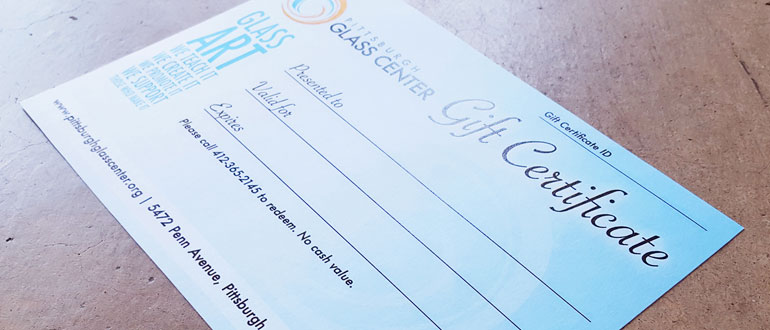 GLASS
ART
WE TEACH IT
WE CREATE IT
WE PROMOTE IT
WE SUPPORT
PITTSBURGH
GLASS CENTER
Gift Certificate
Gift Certificate ID
Presented to
Valid for
Expires
Please call 412-365-2145 to redeem. No cash value.
www.pittsburghglasscenter.org | 5472 Penn Avenue, Pittsburgh